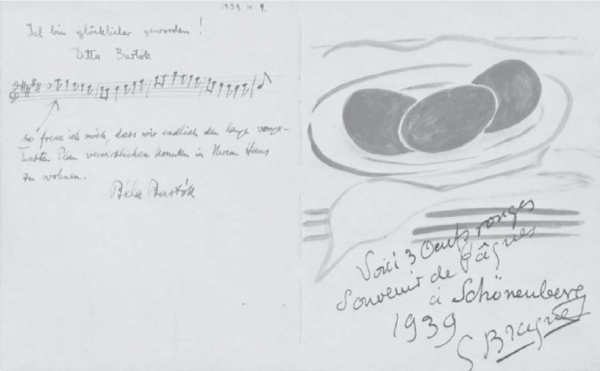 1939. II. 9.
Ich bin glücklicher geworden!
Ditta Bartók
so freue ich mich, dass wir endlich den lange vorge-
habten Plan verwirklichen konnten in Ihrem Haus
zu wohnen.
Béla Bartók
Voici 3 Oeufs rouges
Souvenir de Pâques
à Schönenberg
1939
G Braque